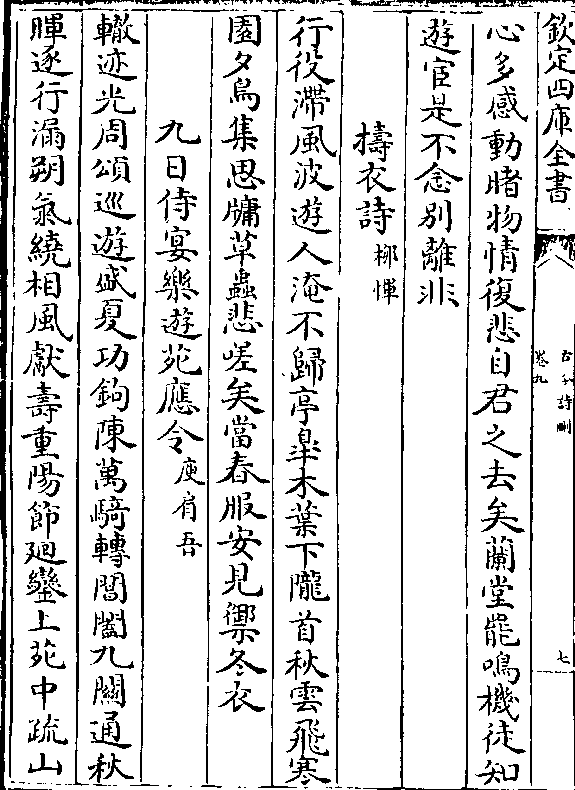 欽定四庫全書
古今詩刪
卷九
七
心多感動睹物情復悲自君之去矣蘭堂罷鳴機徒知
遊宦是不念別離非
擣衣詩 柳惲
行役滯風波遊人淹不歸亭臯木葉下隴首秋雲飛寒
園夕鳥集思牖草蟲悲嗟矣當春服安見禦冬衣
九日侍宴樂遊苑應令 庾肩吾
轍迹光周頌巡遊盛夏功鉤陳萬騎轉閶闔九關通秋
暉逐行漏朔氣繞相風獻壽重陽節廻鑾上苑中疏山